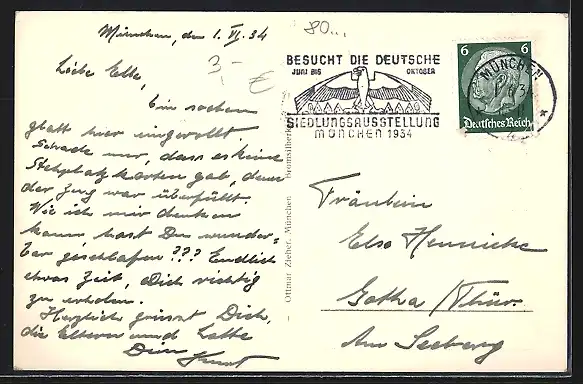 München, den 1. VI. 34
80...
3,-
€
Liebe Else,
Bin soeben
glatt hier eingerollt.
Schade nur, dass es keine
Stehplatzkarten gab, denn
der Zug war überfüllt.
Wie ich mir denken
kann, hast Du wunder-
bar geschlafen??? Endlich
etwas Zeit, Dich richtig
zu erholen.
Herzlich grüsst Dich,
die Eltern und Lotte
Dein Kurt
Ottmar Zieher, München
BESUCHT DIE DEUTSCHE
JUNI BIS OKTOBER
SIEDLUNGSAUSSTELLUNG
MÜNCHEN 1934
6 6
Deutsches Reich
MÜNCHEN
Fräulein
Else Hennicke
Gotha /Thür.
Am Seeberg